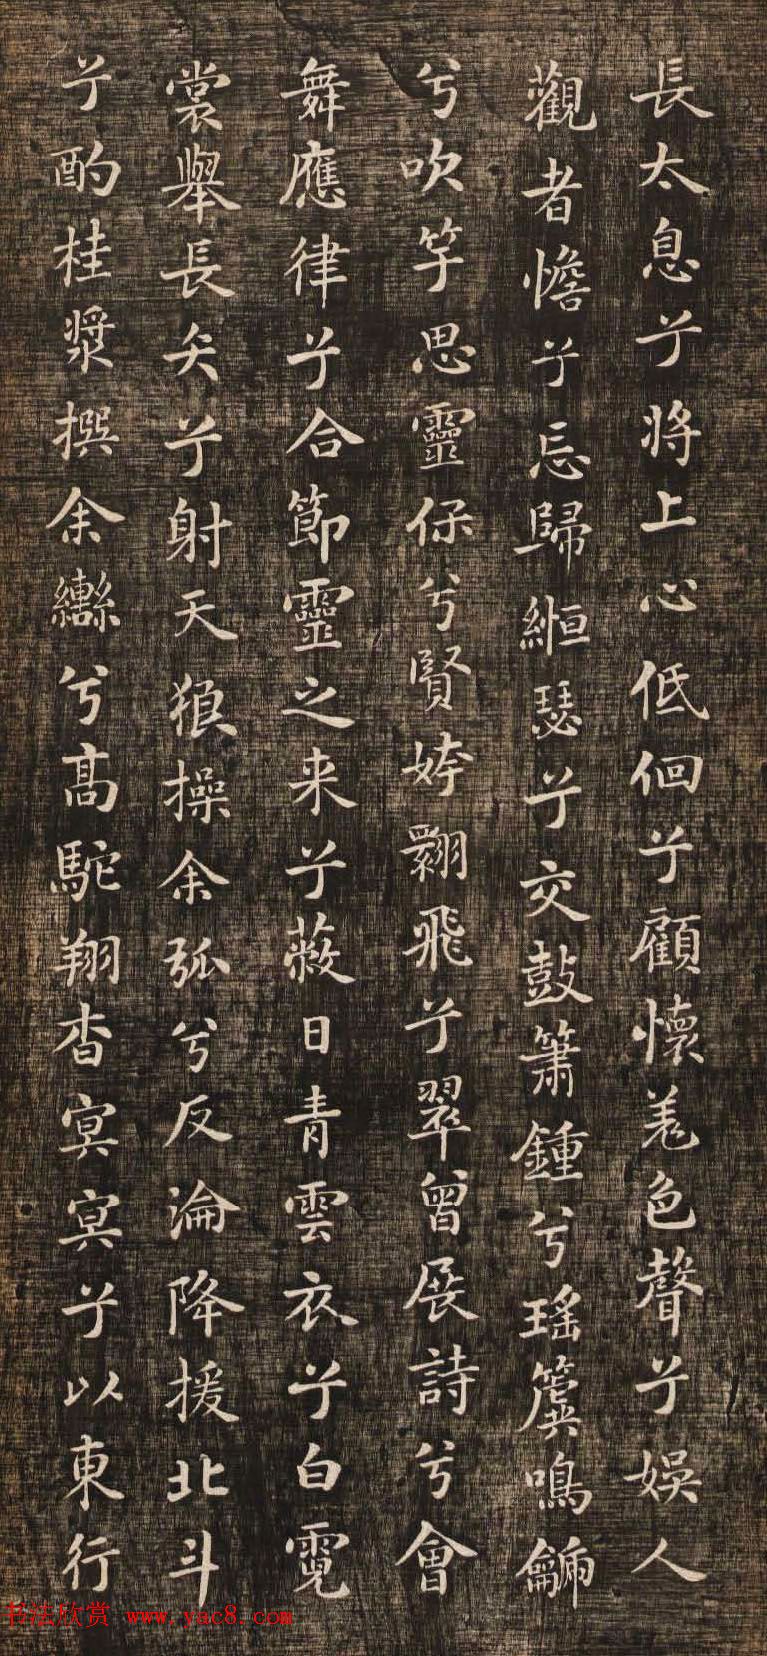 長太息兮將上心低佪兮顧懷羌色聲兮娛人
觀者憺兮忘歸緪瑟兮交鼓簫鍾兮瑤簴鳴鷈
兮吹竽思靈保兮賢姱翾飛兮翠曾展詩兮會
舞應律兮合節靈之来兮蔽日青雲衣兮白霓
裳舉長矢兮射天狼操余弧兮反淪降援北斗
兮酌桂漿撰余轡兮高駝翔杳冥冥兮以東行
书法欣赏 www.yac8.com